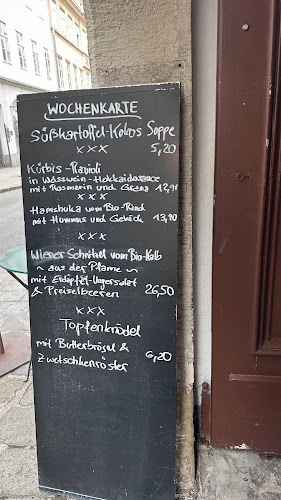 WOCHENKARTE
Süßkartoffel-Kokos Suppe
5,20
x x x
Kürbis-Ravioli
in Weisswein-Hokkaidosauce
mit Rosmarin und Grana 12,90
x x x
Hamshuka vom Bio-Rind
mit Hummus und Gebäck 13,90
x x x
Wiener Schnitzel vom Bio-Kalb
~ aus der Pfanne ~
mit Erdäpfel-Vogersalat
& Preiselbeeren 26,50
x x x
Topfenknödel
mit Butterbrösel & 6,20
Zwetschkenröster